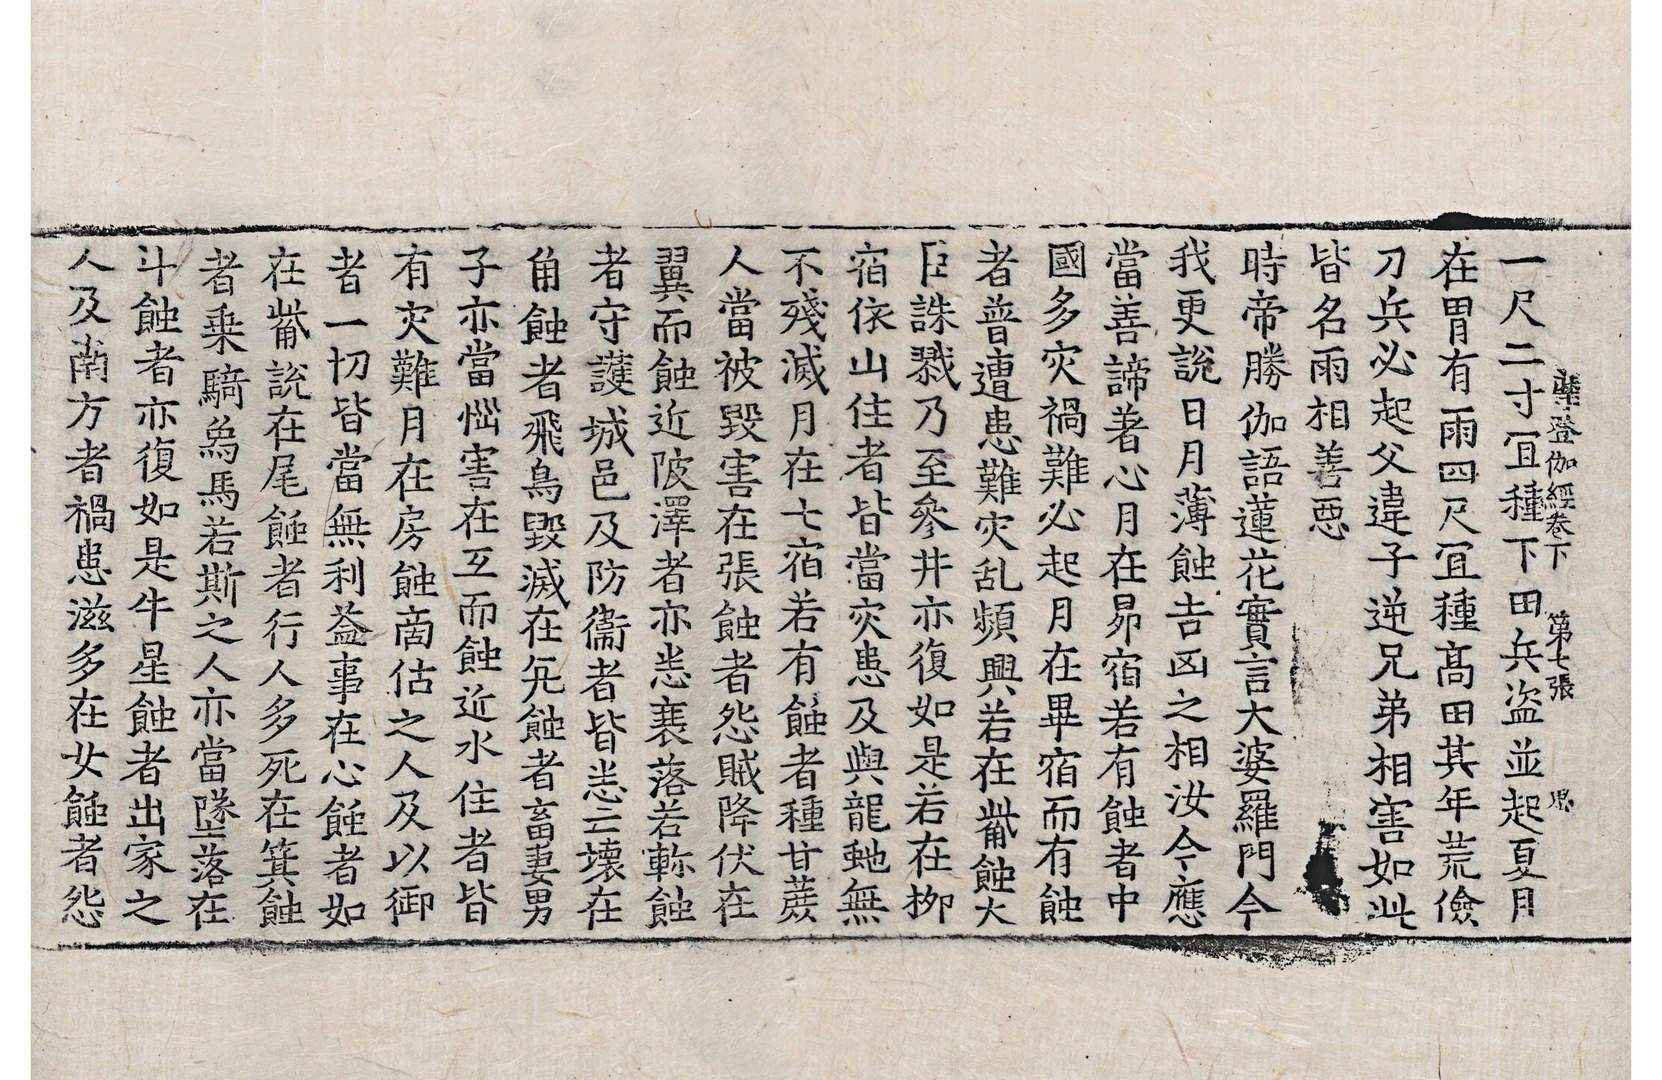 摩登伽經卷下 第七張 思
一尺二寸宜種下田兵盗並起夏月
在胃有雨四尺宜種髙田其年荒儉
刀兵必起父違子逆兄弟相害如此
皆名雨相善惡
時帝勝伽語蓮花實言大婆羅門今
我更說日月薄蝕吉凶之相汝今應
當善諦著心月在昴宿若有蝕者中
國多灾禍難必起月在畢宿而有蝕
者普遭患難灾乱頻興若在觜蝕大
臣誅戮乃至參井亦復如是若在柳
宿依山住者皆當灾患及與龍虵無
不殘滅月在七宿若有蝕者種甘蔗
人當被毀害在張蝕者怨賊降伏在
翼而蝕近陂澤者亦恙衰落若軫蝕
者守護城邑及防衞者皆恙亡壞在
角蝕者飛鳥毀滅在亢蝕者畜妻男
子亦當惱害在互而蝕近水住者皆
有灾難月在房蝕啇估之人及以御
者一切皆當無利益事在心蝕者如
在觜說在尾蝕者行人多死在箕蝕
者乗騎爲馬若斯之人亦當墜落在
斗蝕者亦復如是牛星蝕者出家之
人及南方者禍患滋多在女蝕者怨